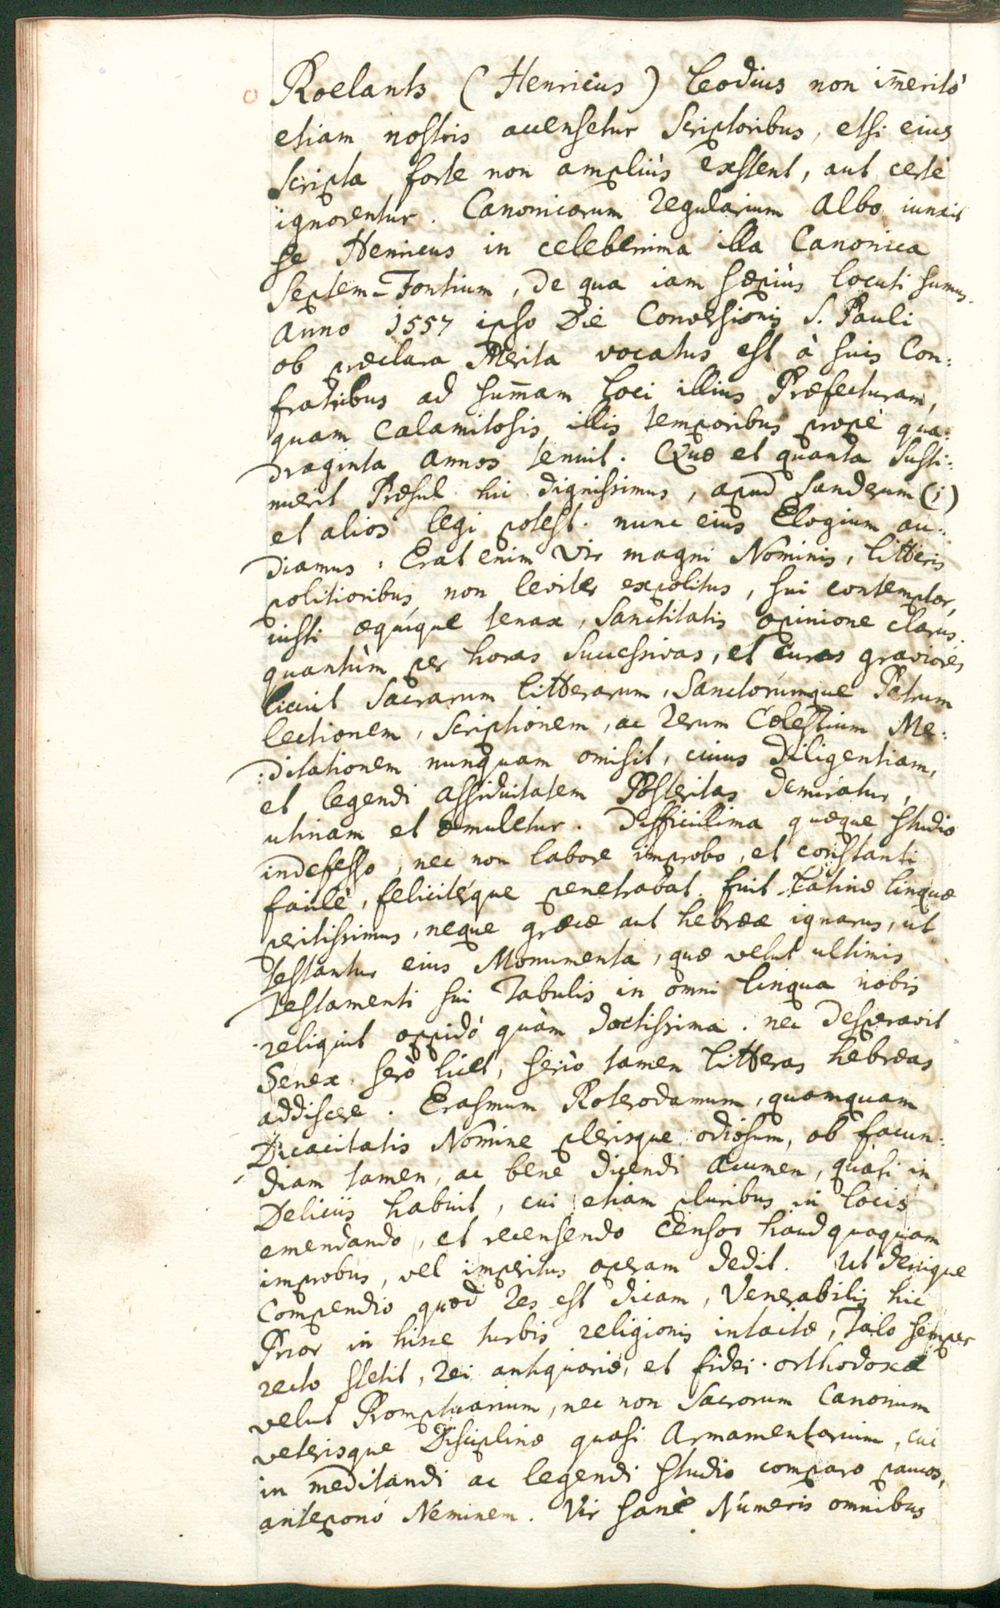 Roelants (Henricus) Leodius non im̄eritò
etiam nostris accensetur scriptoribus, etsi eius
scripta forte non ampliùs exstent, aut certè
ignorentur. Canonicorum Regularium Albo iunxit
se Henricus in celeberrima illa Canonica
Septem-Fontium, de qua iam sæpiùs locuti sumus.
Anno 1557 ipso Die Conversionis S. Pauli
ob præclara Merita vocatus est à suis Con:
fratribus ad sum̄am loci illius Præfecturam,
quam calamitosis illis temporibus propè qua:
draginta annos tenuit. Quæ et quanta susti:
nuerit Præsul hic dignissimus, apud Sanderum (i)
et alios legi potest. nunc eius Elogium au:
diamus. Erat enim vir magni Nominis, litteris
politioribus non leviter expolitus, sui contemptor,
iusti æquique tenax, Sanctitatis opinione clarus.
quantùm per horas successivas, et curas graviores
licuit sacrarum litterarum, Sanctorumque Patrum
lectionem, scriptionem, ac rerum Cœlestium Me:
:ditationem nunquam omisit, cuius diligentiam,
et legendi assiduitatem Posteritas demiratur,
utinam et æmuletur. Difficillima quæque studio
indefesso, nec non labore improbo, et constanti
facilè, felicitérque penetrabat. fuit Latinæ linguæ
peritissimus, neque græcæ aut hebrææ ignarus, ut
testantur eius Monumenta, quæ velut ultimis
Testamenti sui Tabulis in omni lingua nobis
reliquit oppidò quàm doctissima. nec desperavit
Senex serò licet, seriò tamen litteras hebræas
addiscere. Erasmum Roterodamum, quamquam
Dicacitatis Nomine plerisque odiosum, ob facun:
diam tamen, ac bene dicendi acumen, quasi in
Deliciis habuit, cui etiam pluribus in locis
emendando, et recensendo censor haudquaquam
improbus, vel imperitus operam dedit. Ut denique
compendio quod res est dicam, Venerabilis hic
Prior in hisce turbis religionis intactæ, Talo semper
recto stetit, rei antiquariæ, et fidei orthodoxæ
velut Promptuarium, nec non sacrorum Canonum
veterisque Disciplinæ quasi Armamentarium, cui
in meditandi ac legendi studio comparo paucos,
antepono Neminem. Vir sanè Numeris omnibus